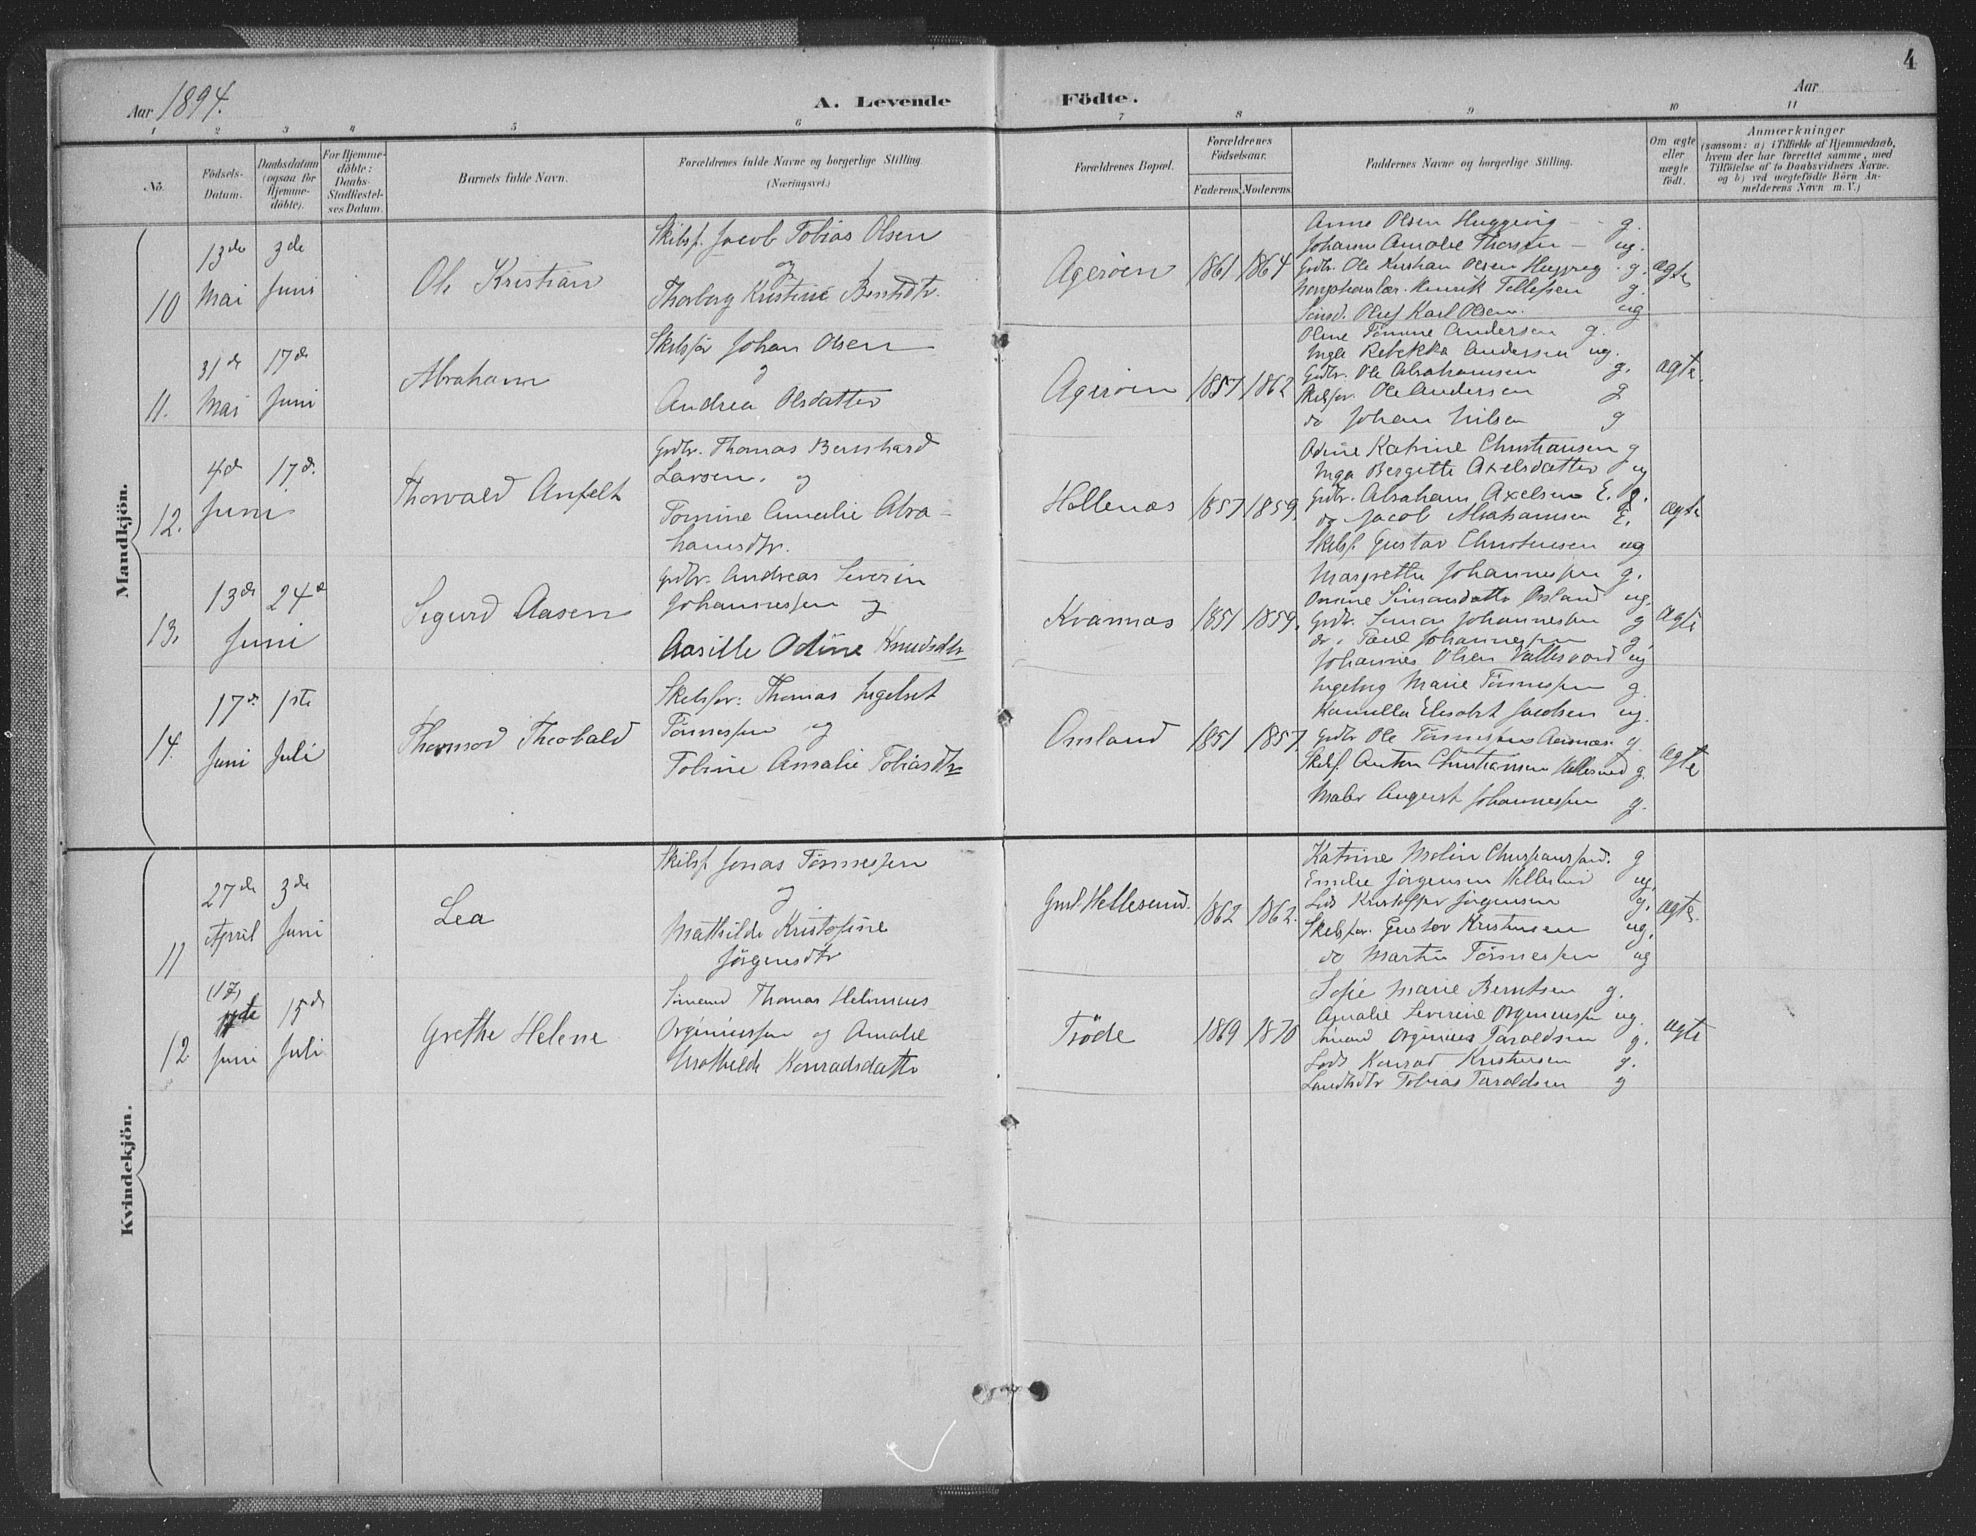 4
Aar 1894.
A. Levende Födte.
Aar
1 2 3 4 5 6 7 8 9 10 11
No.
Födsels-Datum.
Daabsdatum (ogsaa for Hjemmedöbte).
For Hjemmedöbte: Daabs-Stadfæstelses Datum.
Barnets fulde Navn.
Forældrenes fulde Navne og borgerlige Stilling. (Næringsvei.)
Forældrenes Bopæl.
Forældrenes Födselsaar.
Faderens. Moderens.
Faddernes Navne og borgerlige Stilling.
Om ægte eller uægte födt.
Anmærkninger
(saasom: a) i Tilfælde af Hjemmedaab, hvem der har forrettet samme, med Tilföielse af to Daabsvidners Navne. og b) ved uægtefödte Börn Anmelderens Navn m. V.)
Mandkjön.
10 13de Mai 3de Juni
Ole Kristian
Skibsf. Jacob Tobias Olsen
og
Thorborg Kristine Berntsdtr.
Ageröen 1861 1864
Anne Olsen g.
Johanne Amalie ug.
Grdbr. Ole Kristian Olsen g.
Henrik Tellefsen g.
Olaf Karl Olsen. ug
ægte
11. 31de Mai 17de Juni
Abraham
Skibsför Johan Olsen
og
Andrea Olsdatter
Ageröen 1857 1862
Oline Tomine Andersen g.
Inga Rebekka Andersen ug.
Grdbr. Ole Abrahamsen g.
Skibsför. Ole Andersen g
do Johan Nilsen g
ægte.
12. 4de 17de Juni
Thorvald Anfelt
Grdbr. Thomas Bernhard
Larsen. og
Tomine Amalie Abra-
hamsdtr.
Hellenæs 1857 1859.
Odine Katrine Christiansen g
Inga Bergette Axelsdatter ug
Grdbr. Abraham Axelsen E. g.
do Jacob Abrahamsen E.
Skibsf. Gustav Christensen ug
ægte
13. 13de 24de Juni
Sigurd Aasen
Grdbr. Andreas Severin
Johannessen og
Aasille Odine Knudsdtr
Kvannæs 1851 1859.
Margrethe Johannessen g.
Simonsdatter ug.
Grdbr. Simon Johannessen g
do. Johannessen g
Johannes Olsen ug
ægte
14. 17de Juni 1ste Juli
Thormod Theobald
Skibsför: Thomas Ingelset
Tönnessen og
Tobine Amalie Tobiasdtr
Omland 1851 1857
Ingeborg Marie Tönnessen g.
Kamilla Elisabet Jacobsen ug.
Grdbr Ole Tönnessen g.
Skibsf. Anton Christiansen Hellesund g.
Maler August Johannessen g.
ægte
Kvindekjön.
11 27de April 3de Juni
Lea
Skibsf Jonas Tönnessen
og
Mathilde Kristofine
Jörgensdtr
Hellesund. 1862 1862.
Katrine Malin g
Emelie Jörgensen Hellesund ug.
Lods Kristoffer Jörgensen g.
Skibsför. Gustav Kristensen ug.
do Martin Tönnessen ug
ægte.
12 (17) de Juni 15de Juli
Grethe Helene
Sömand Thomas Helmius
Orginiussen og Amalie
Mathilde Konradsdatter
Tröde 1869 1870
Sofie Marie Berntsen g.
Amalie Severine Orginiussen ug.
Sömand Orginius Taraldsen g.
Lods Konrad Kristensen g.
Tobias Taraldsen g
ægte